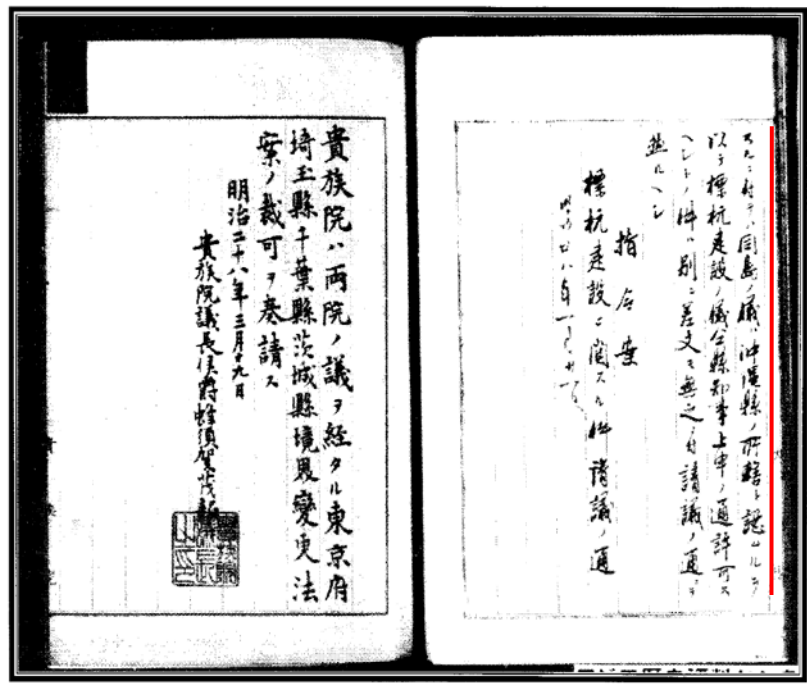 スルニ付テハ同島ノ儀ハ沖縄縣ノ所轄ト認ムルヲ
以テ標杭建設ノ儀仝縣知事上申ノ通許可ス
ヘシトノ件ハ別ニ差支モ無之ニ付請議ノ通ニテ
然ルヘシ
指令案
標杭建設ニ関スル件請議ノ通
明治廿八年一月廿一日
貴族院ハ両院ノ議ヲ経タル東京府
埼玉縣千葉縣茨城縣境界變更法
案ノ裁可ヲ奏請ス
明治二十八年三月十九日
貴族院議長侯爵蜂須賀茂韶